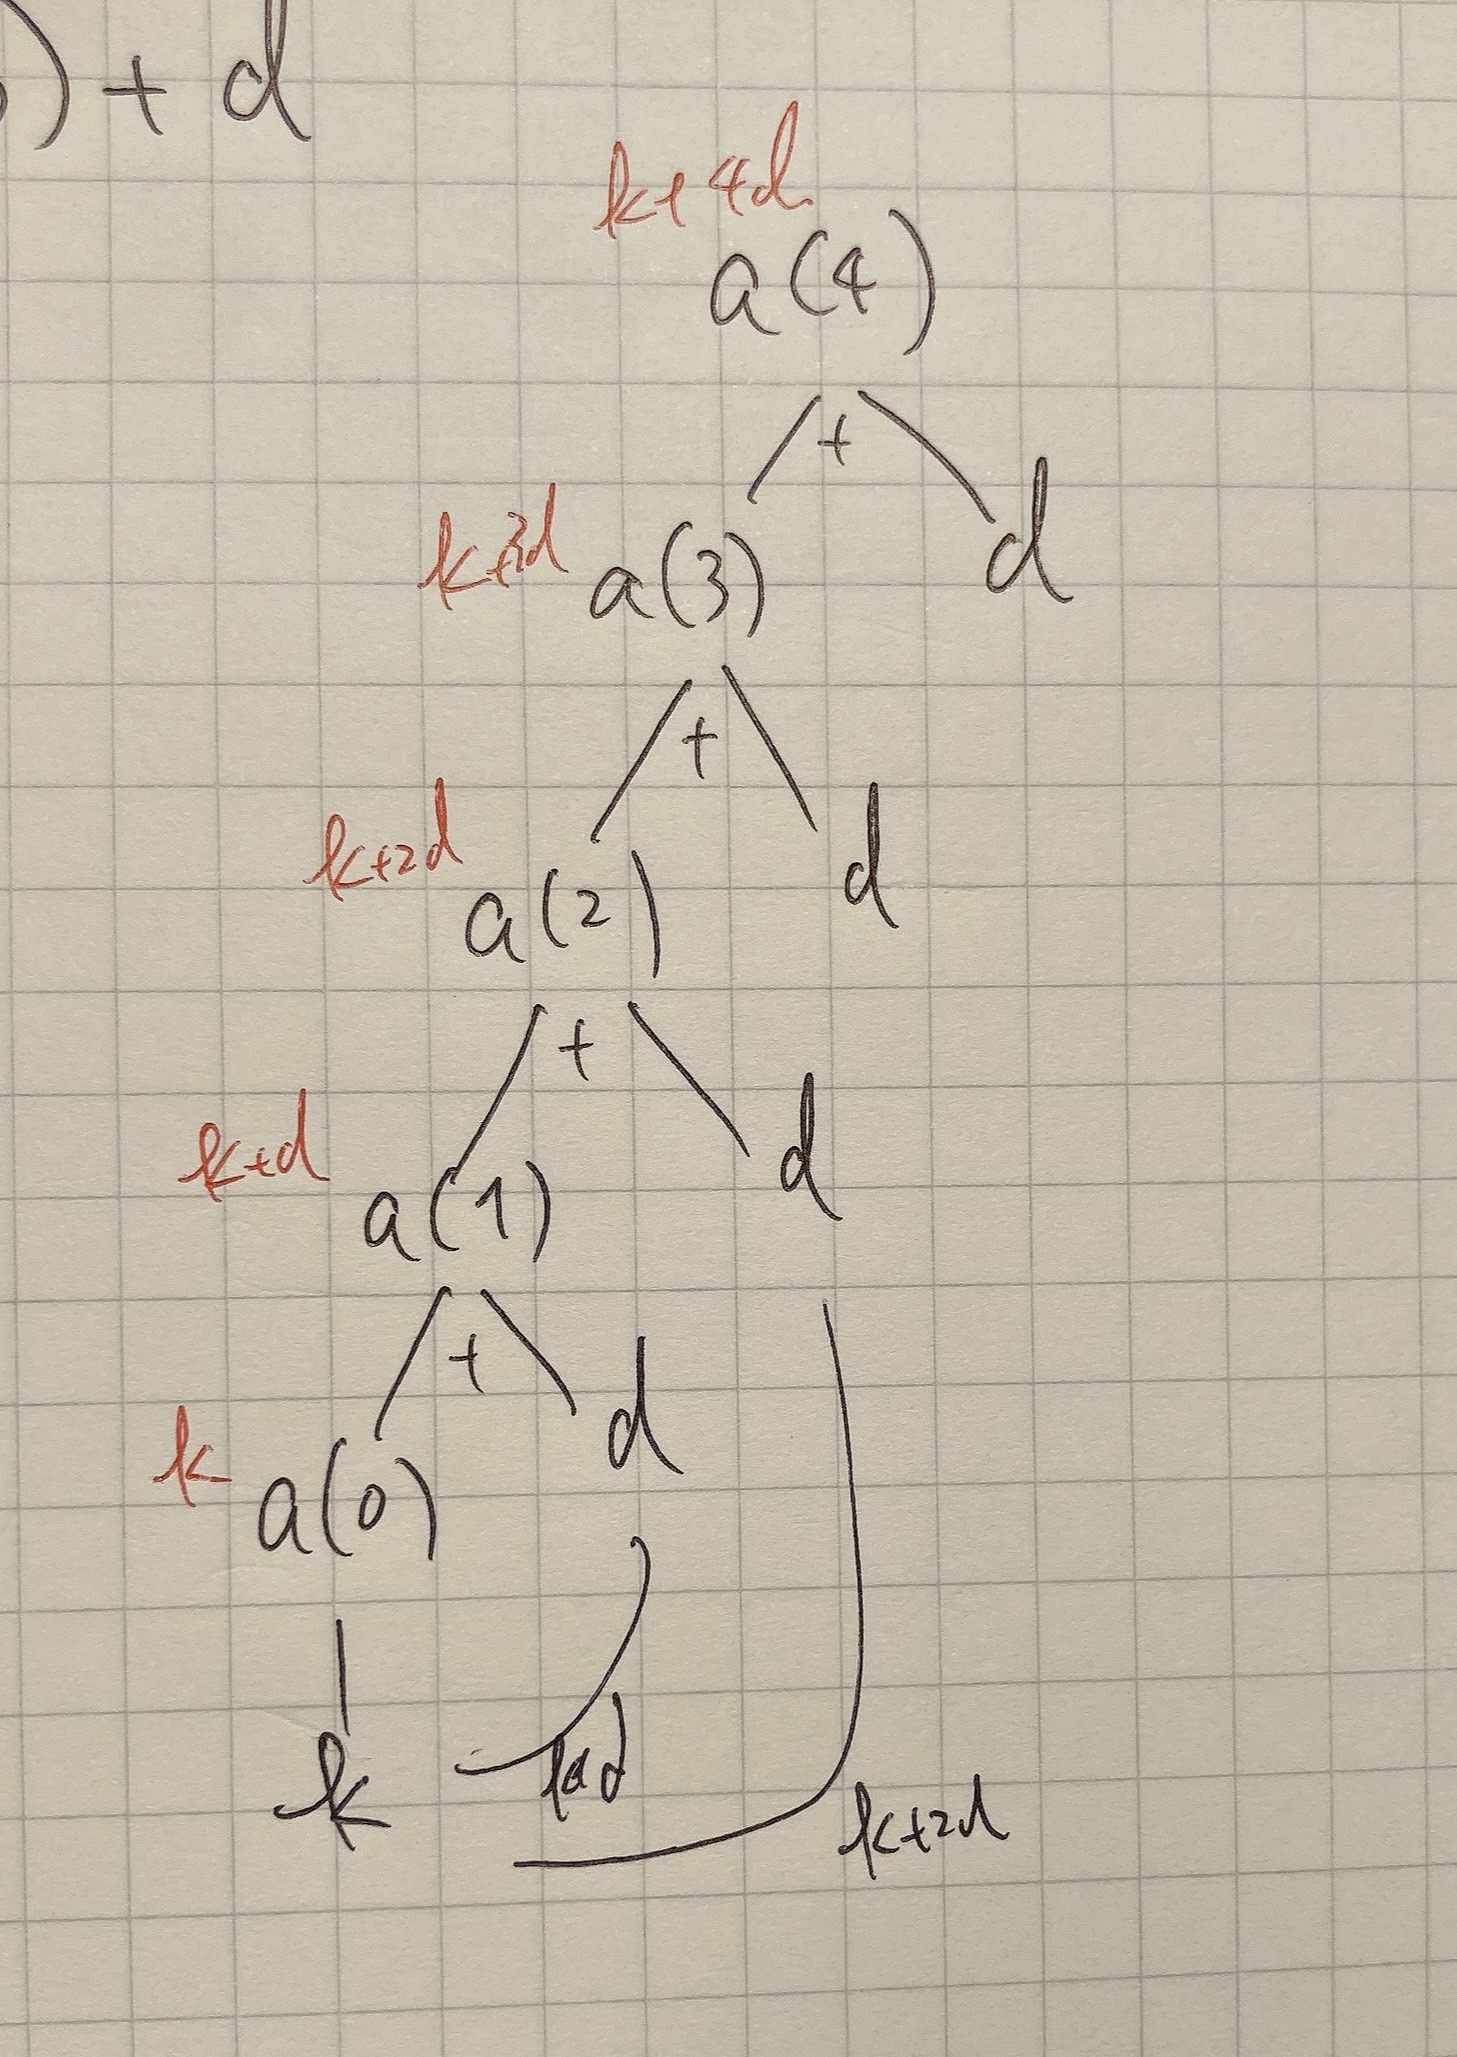 ) + d
k+ 4d
a(4)
+
k+3d a(3) d
+
k+2d a(2) d
+
k+d a(1) d
+
k a(0) d
k k+d k+2d